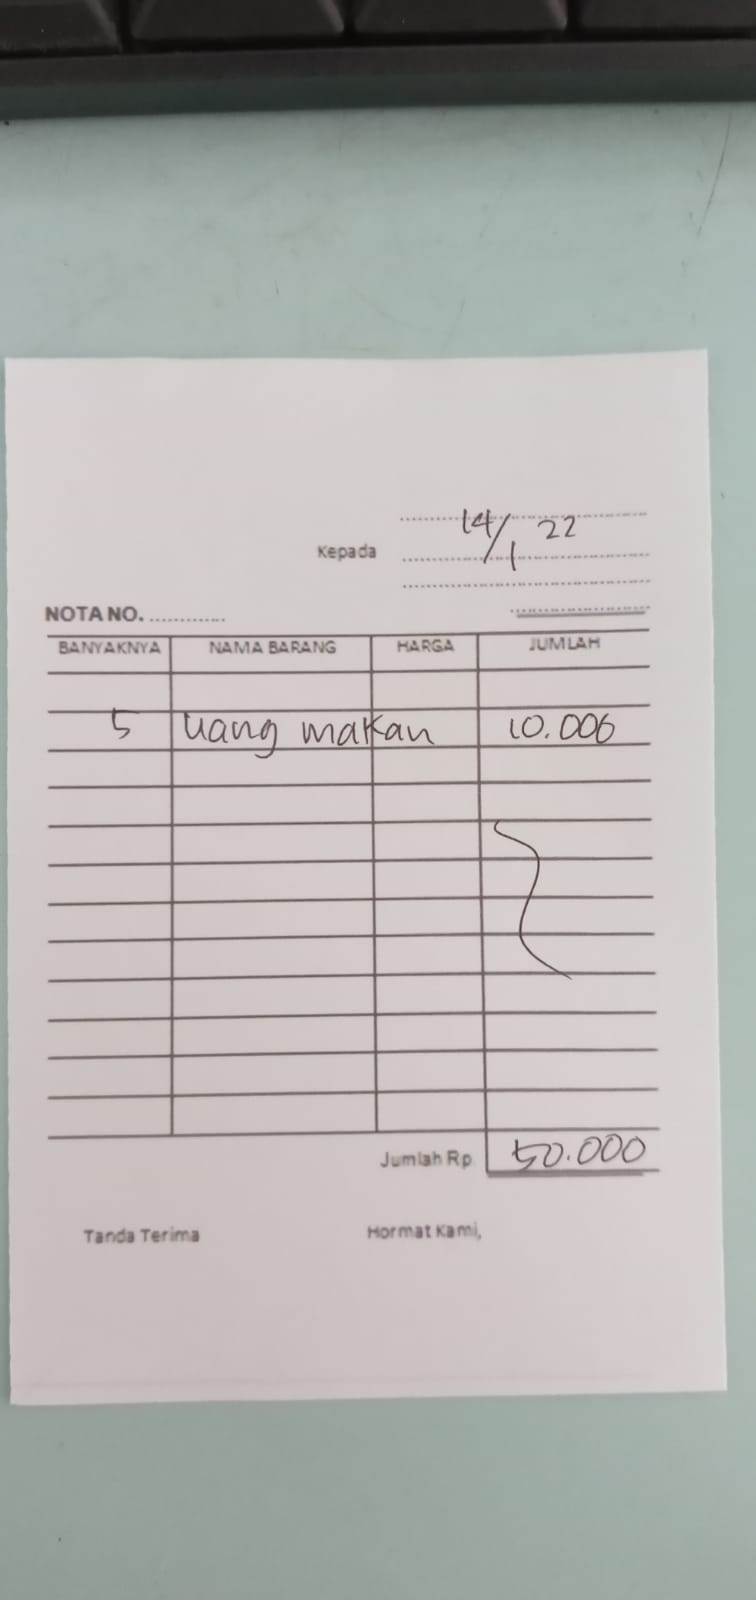 14/1 22
Kepada
NOTA NO. .............
BANYAKNYA NAMA BARANG HARGA JUMLAH
5 uang makan 10.000
Jumlah Rp 50.000
Tanda Terima Hormat Kami,